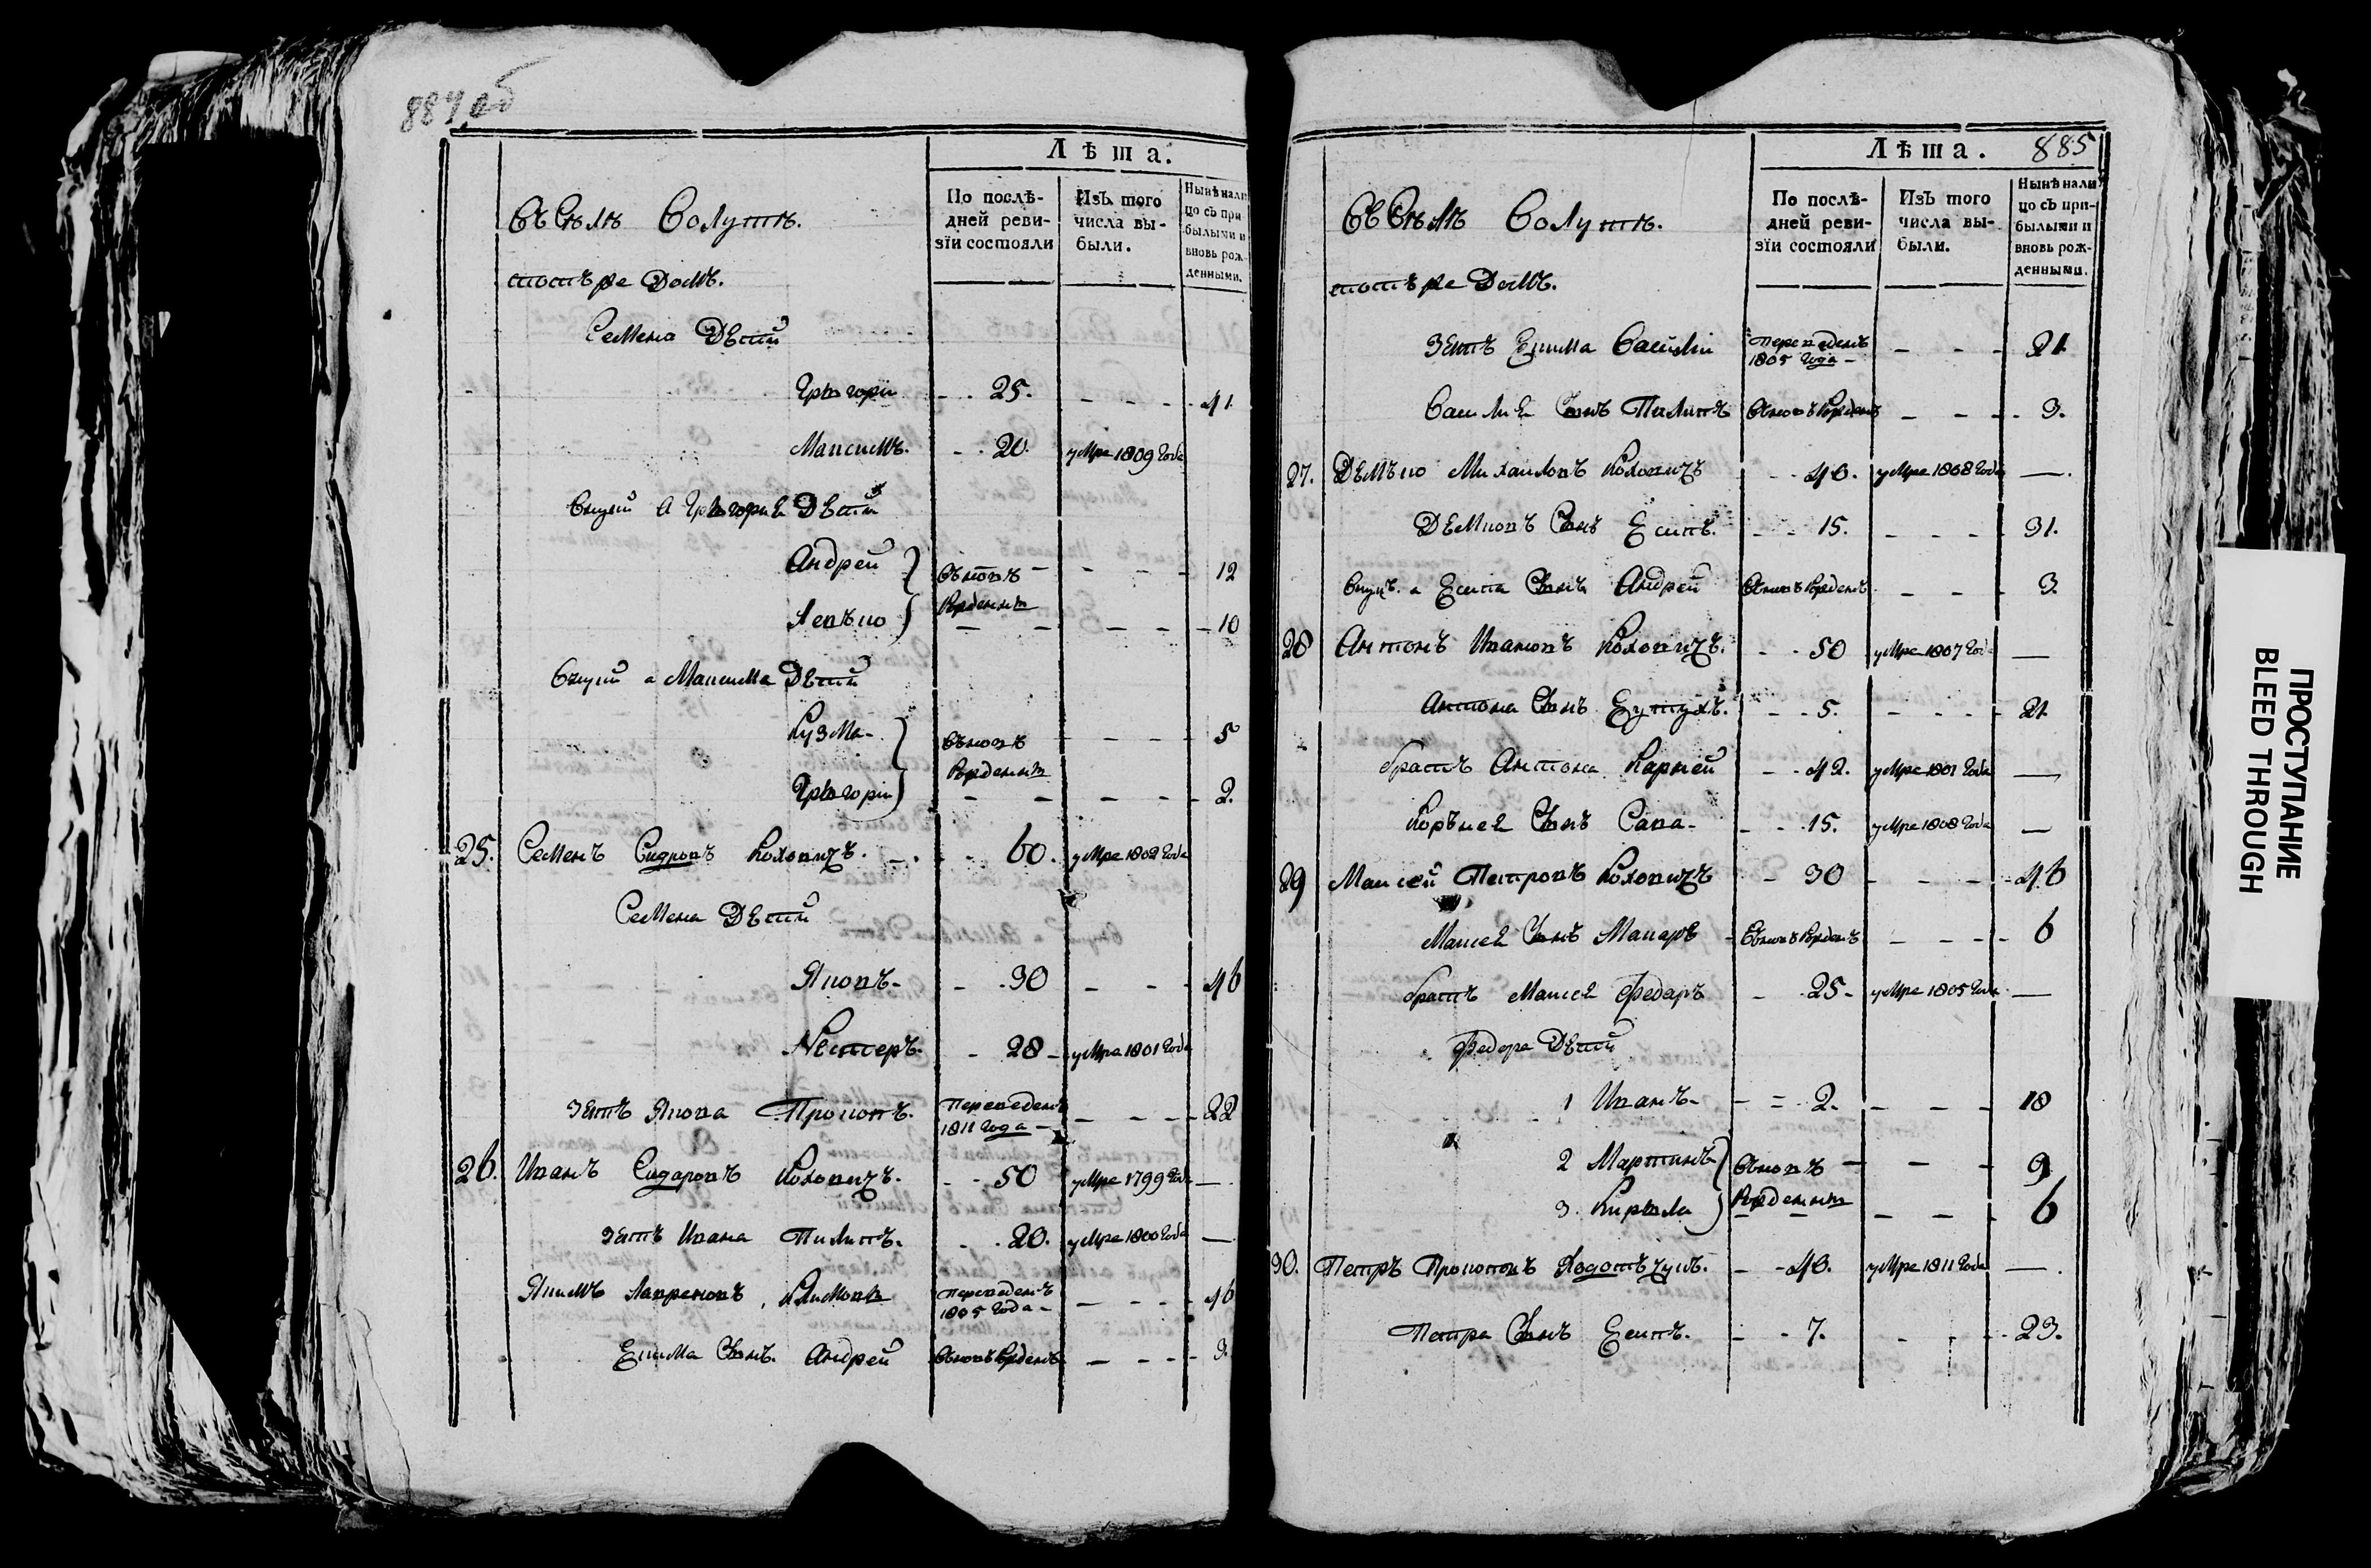 884 об
Лѣта.
По послѣ-
дней реви-
зїи состояли
Изъ того
числа вы-
были.
Нынѣ нали
цо съ при
былыми и
вновь рож-
денными.
Въ Селѣ Волутѣ.
тотъ же Домъ.
Семена Дѣти
Григори 25. 41
Максимъ. 20. умре 1809 Года
Внуки а Григория Дѣти
Андрей 12
вновь
рождени
10
Внуки а Максима Дѣти
Кузма 5
вновь
рождени
Григори 2.
25. Семенъ Сидровъ 60. умре 1802 Года
Семена Дѣти
Яковъ 30 46
Нестеръ. 28 умре 1801 Года
зеть Якова Прокопъ. переведенъ
1811 Года 22
26. Иванъ Сидаровъ 50 умре 1799 Года
зеть Ивана Пилипъ. 20. умре 1800 Года
Якимъ переведенъ
1805 Года 46
Екима Сынъ. Андрей вновь рожденъ 3.
Лѣта. 885
По послѣ-
дней реви-
зїи состояли
Изъ того
числа вы-
были.
Нынѣ нали
цо съ при-
былыми и
вновь рож-
денными.
Въ Селѣ Волутѣ.
тотъ же Домъ.
зеть Екима Василий переведенъ
1805 Года 21
Василия Сынъ Пилипъ вновь рожденъ 3.
27. Демъко Михаиловъ 40. умре 1808 Года
Демковъ Сынъ Есипъ. 15. 31.
Внукъ. а Есипа Сынъ Андрей вновь рожденъ 3.
28 Антонъ Ивановъ 50 умре 1807 Года
Антона Сынъ 5. 21
братъ Антона Карней 42. умре 1801 Года
Корънея Сынъ Сава 15. умре 1808 Года
29 Мансей Петровъ 30 46
Мансея Сынъ Макаръ вновь рожденъ 6
братъ Мансея Федаръ 25 умре 1805 Года
Федора Дѣти
1 Иванъ 2. 18
2 Мартинъ вновь 9
3. Кирила рождени 6
30. Петръ Прокоповъ 40. умре 1811 Года
Петра Сынъ Есипъ. 7. 23.
ПРОСТУПАНИЕ
BLEED THROUGH